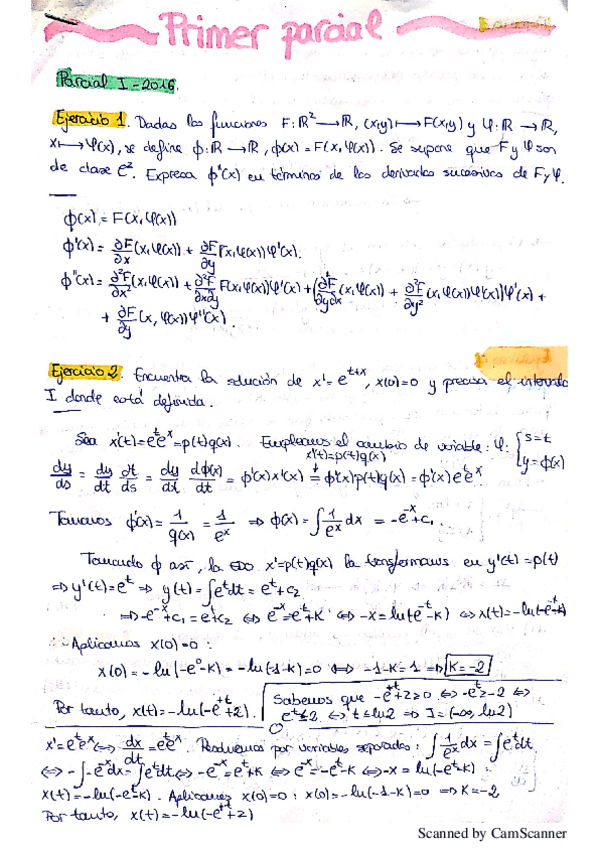 Primer parcial
Parcial I-2016.
Ejercicio 1. Dadas las funciones F: ℝ² → ℝ, (x,y) ↦ F(x,y) y φ: ℝ → ℝ,
x ↦ φ(x), se define ϕ: ℝ → ℝ, ϕ(x) = F(x, φ(x)). Se supone que F y φ son
de clase C². Expresa ϕ''(x) en términos de las derivadas sucesivas de F y φ.
ϕ(x) = F(x, φ(x))
ϕ'(x) = ∂F/∂x (x, φ(x)) + ∂F/∂y (x, φ(x)) φ'(x).
ϕ''(x) = ∂²F/∂x² (x, φ(x)) + ∂²F/∂x∂y F(x, φ(x)) φ'(x) + (∂F/∂y∂x (x, φ(x)) + ∂²F/∂y² (x, φ(x)) φ'(x)) φ'(x) +
+ ∂F/∂y (x, φ(x)) φ''(x).
Ejercicio 2. Encuentra la solución de x' = e^(t+x), x(0)=0 y precisa el intervalo
I donde está definida.
Sea x'(t) = e^t e^x = p(t)q(x). Empleamos el cambio de variable: φ: { s=t
y=ϕ(x)
x'(t)=p(t)q(x)
dy/ds = dy/dt dt/ds = dy/dx dϕ(x)/dt = ϕ'(x)x'(x) = ϕ'(x)p(t)q(x) = ϕ'(x)e^t e^x.
Tomamos ϕ'(x) = 1/q(x) = 1/e^x ⇒ ϕ(x) = ∫ 1/e^x dx = -e^-x + c₁.
Tomando ϕ así, la EDO x'=p(t)q(x) la transformamos en y'(t) = p(t)
⇒ y'(t) = e^t ⇒ y(t) = ∫e^t dt = e^t + c₂
⇒ -e^-x + c₁ = e^t + c₂ ⇔ e^-x = -e^t + K ⇔ -x = ln(-e^t - K) ⇔ x(t) = -ln(-e^t-K)
∴ Aplicamos x(0)=0:
x(0) = -ln(-e^0-K) = -ln(-1-K) = 0 ⇔ -1-K = 1 ⇒ K=-2
Por tanto, x(t) = -ln(-e^t+2). Sabemos que -e^t+2≥0 ⇔ -e^t≥-2 ⇔
e^t≤2 ⇔ t≤ln2 ⇒ I=(-∞, ln2)
x' = e^t e^x ⇔ dx/dt = e^t e^x. Resolvemos por variables separadas: ∫ 1/e^x dx = ∫e^t dt.
⇔ -∫-e^-x dx = ∫e^t dt ⇔ -e^-x = e^t + K ⇔ e^-x = -e^t - K ⇔ -x = ln(-e^t-K)
x(t) = -ln(-e^t-K). Aplicamos x(0)=0: x(0) = -ln(-1-K) = 0 ⇒ K=-2
Por tanto, x(t) = -ln(-e^t+2)
Scanned by CamScanner